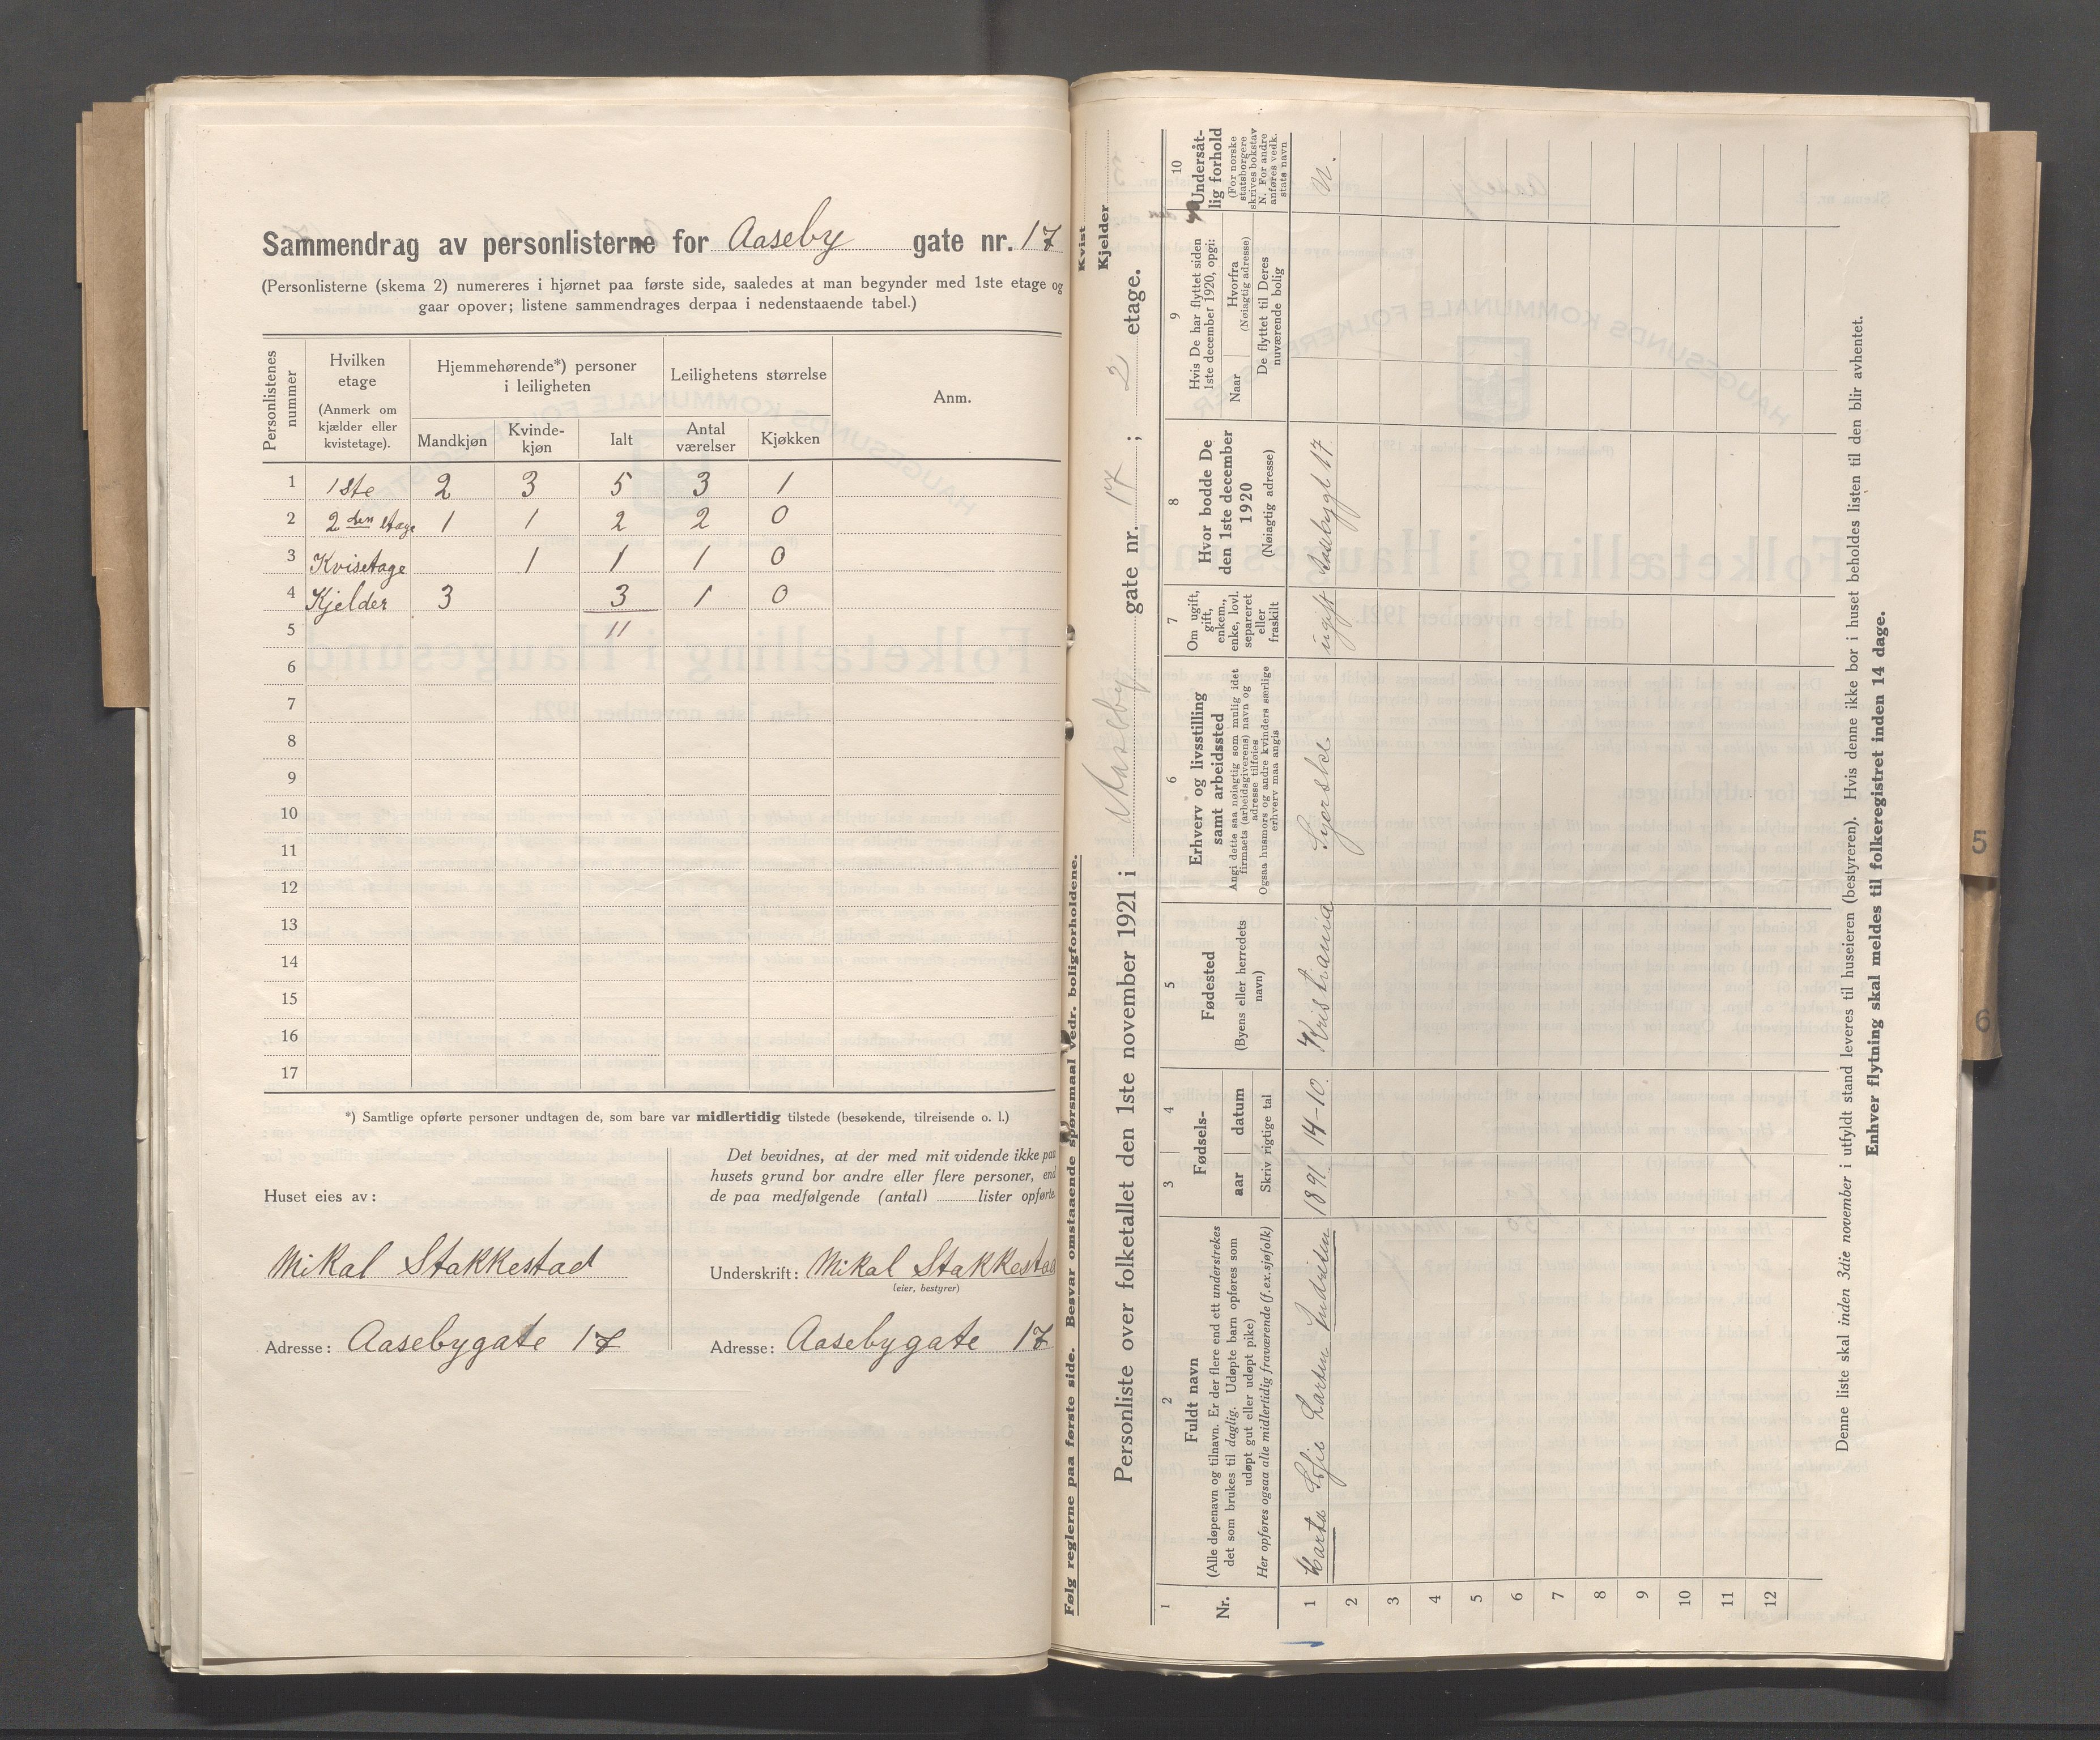 Sammendrag av personlisterne for Aaseby gate nr. 17
(Personlisterne (skema 2) numereres i hjørnet paa første side, saaledes at man begynder med 1ste etage og
gaar opover; listene sammendrages derpaa i nedenstaaende tabel.)
Personlistenes nummer
Hvilken etage (Anmerk om kjælder eller kvistetage).
Hjemmehørende*) personer i leiligheten
Leilighetens størrelse
Anm.
Mandkjøn Kvinde-kjøn Ialt Antal værelser Kjøkken
1 1ste 2 3 5 3 1
2 2den etage 1 1 2 2 0
3 Kvisetage 1 1 1 0
4 Kjelder 3 3 1 0
5 11
6
7
8
9
10
11
12
13
14
15
16
17
*) Samtlige opførte personer undtagen de, som bare var midlertidig tilstede (besøkende, tilreisende o. l.)
Huset eies av:
Mikal Stakkestad
Adresse: Aasebygate 17
Det bevidnes, at der med mit vidende ikke paa
husets grund bor andre eller flere personer, end
de paa medfølgende (antal) lister opførte
Underskrift: Mikal Stakkestad
(eier, bestyrer)
Adresse: Aasebygate 17
Følg reglerne paa første side. Besvar omstaaende spørsmaal vedr. boligforholdene.
Kvist
Kjelder
Personliste over folketallet den 1ste november 1921 i Aaseby gate nr. 17; 2 etage.
1
Nr.
2
Fuldt navn
(Alle døpenavn og tilnavn. Er der flere end ett understrekes
det som brukes til daglig. Udøpte barn opføres som
udøpt gut eller udøpt pike)
Her opføres ogsaa alle midlertidig fraværende (f.ex.sjøfolk)
3 4
Fødsels-
aar datum
Skriv rigtige tal
5
Fødested
(Byens eller herredets
navn)
6
Erhverv og livsstilling
samt arbeidssted
Angi dette saa nøiagtig som mulig idet
firmaets (arbeidsgiverens) navn og
adresse tilføies
Ogsaa husmors og andre kvinders særlige
erhverv maa angis
7
Om ugift,
gift,
enkem.,
enke, lovl.
separeret
eller
fraskilt
8
Hvor bodde De
den 1ste december
1920
(Nøiagtig adresse)
9
Hvis De har flyttet siden
1ste december 1920, opgi:
Naar
Hvorfra
(Nøiagtig adresse)
De flyttet til Deres
nuværende bolig
10
Undersåt-
lig forhold
(For norske
statsborgere
skrives bokstav
N. For andre
anføres vedk.
stats navn
1 Marta Sofie Larsen 1891 14-10. Kristiania ugift Aasebygt 17. N.
2
3
4
5
6
7
8
9
10
11
12
Denne liste skal inden 3die november i utfyldt stand leveres til huseieren (bestyreren). Hvis denne ikke bor i huset beholdes listen til den blir avhentet.
Enhver flytning skal meldes til folkeregistret inden 14 dage.
5
6